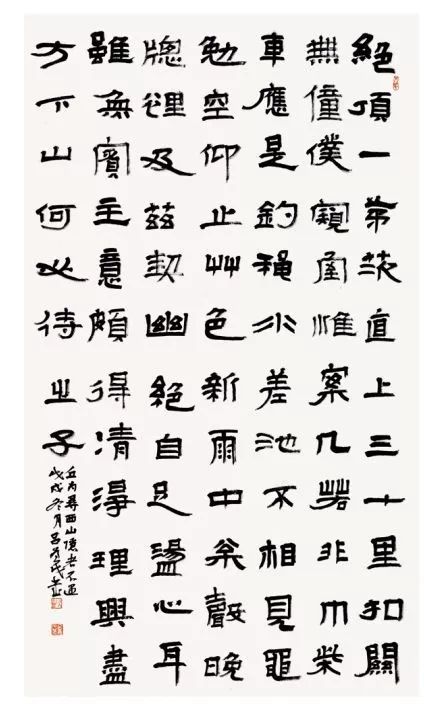 絕頂一茅茨直上三十里扣關
無僮僕窺室惟案几若非巾柴
車應是釣穐水差池不相見黽
勉空仰止艸色新雨中枀聲晚
牕裡及茲契幽絕自足盪心耳
雖無賓主意頗得清淨理興盡
方下山何必待之子
丘为尋西山隱者不遇
戊戌冬月吕